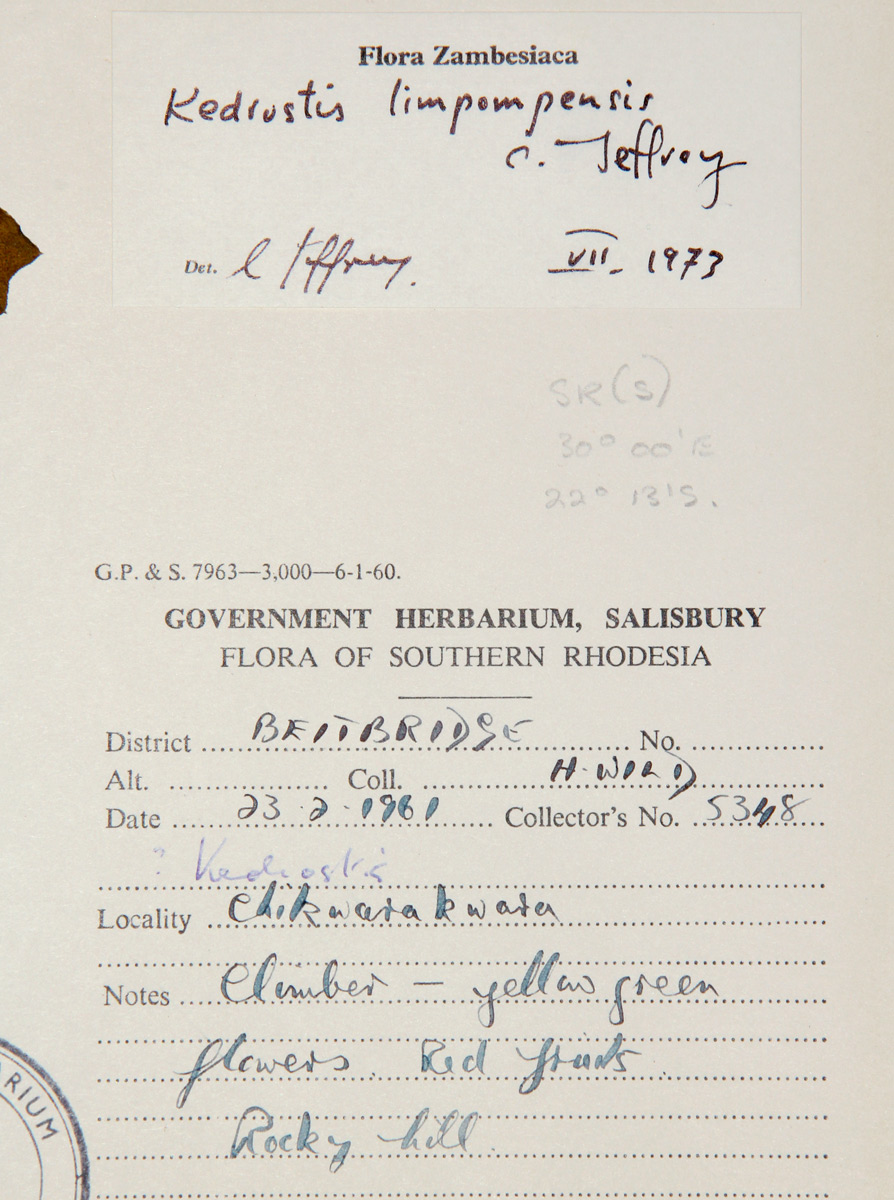 Flora Zambesiaca
Kedrostis limpompensis
C. Jeffrey
Det. C Jeffrey. VII. 1973
SR(S)
30° 00'E
22° 13'S.
G.P. & S. 7963—3,000—6-1-60.
GOVERNMENT HERBARIUM, SALISBURY
FLORA OF SOUTHERN RHODESIA
District BEITBRIDGE No.
Alt. Coll. H. WILD
Date 23.2.1961 Collector's No. 5348
? Kedrostis
Locality Chikwarakwara
Notes Climber — yellow green
flowers. Red fruits
Rocky hill.
ARIUM